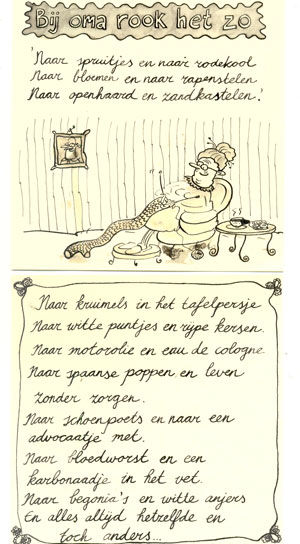 Bij oma rook het zo
'Naar spruitjes en naar rodekool
Naar bloemen en naar rapenstelen
Naar openhaard en zandkastelen.'
Naar kruimels in het tafelpersje
Naar witte puntjes en rijpe kersen.
Naar motorolie en eau de cologne
Naar spaanse poppen en leven
zonder zorgen.
Naar schoenpoets en naar een
advocaatje met.
Naar bloedworst en een
karbonaadje in het vet.
Naar begonia's en witte anjers
En alles altijd hetzelfde en
toch anders...